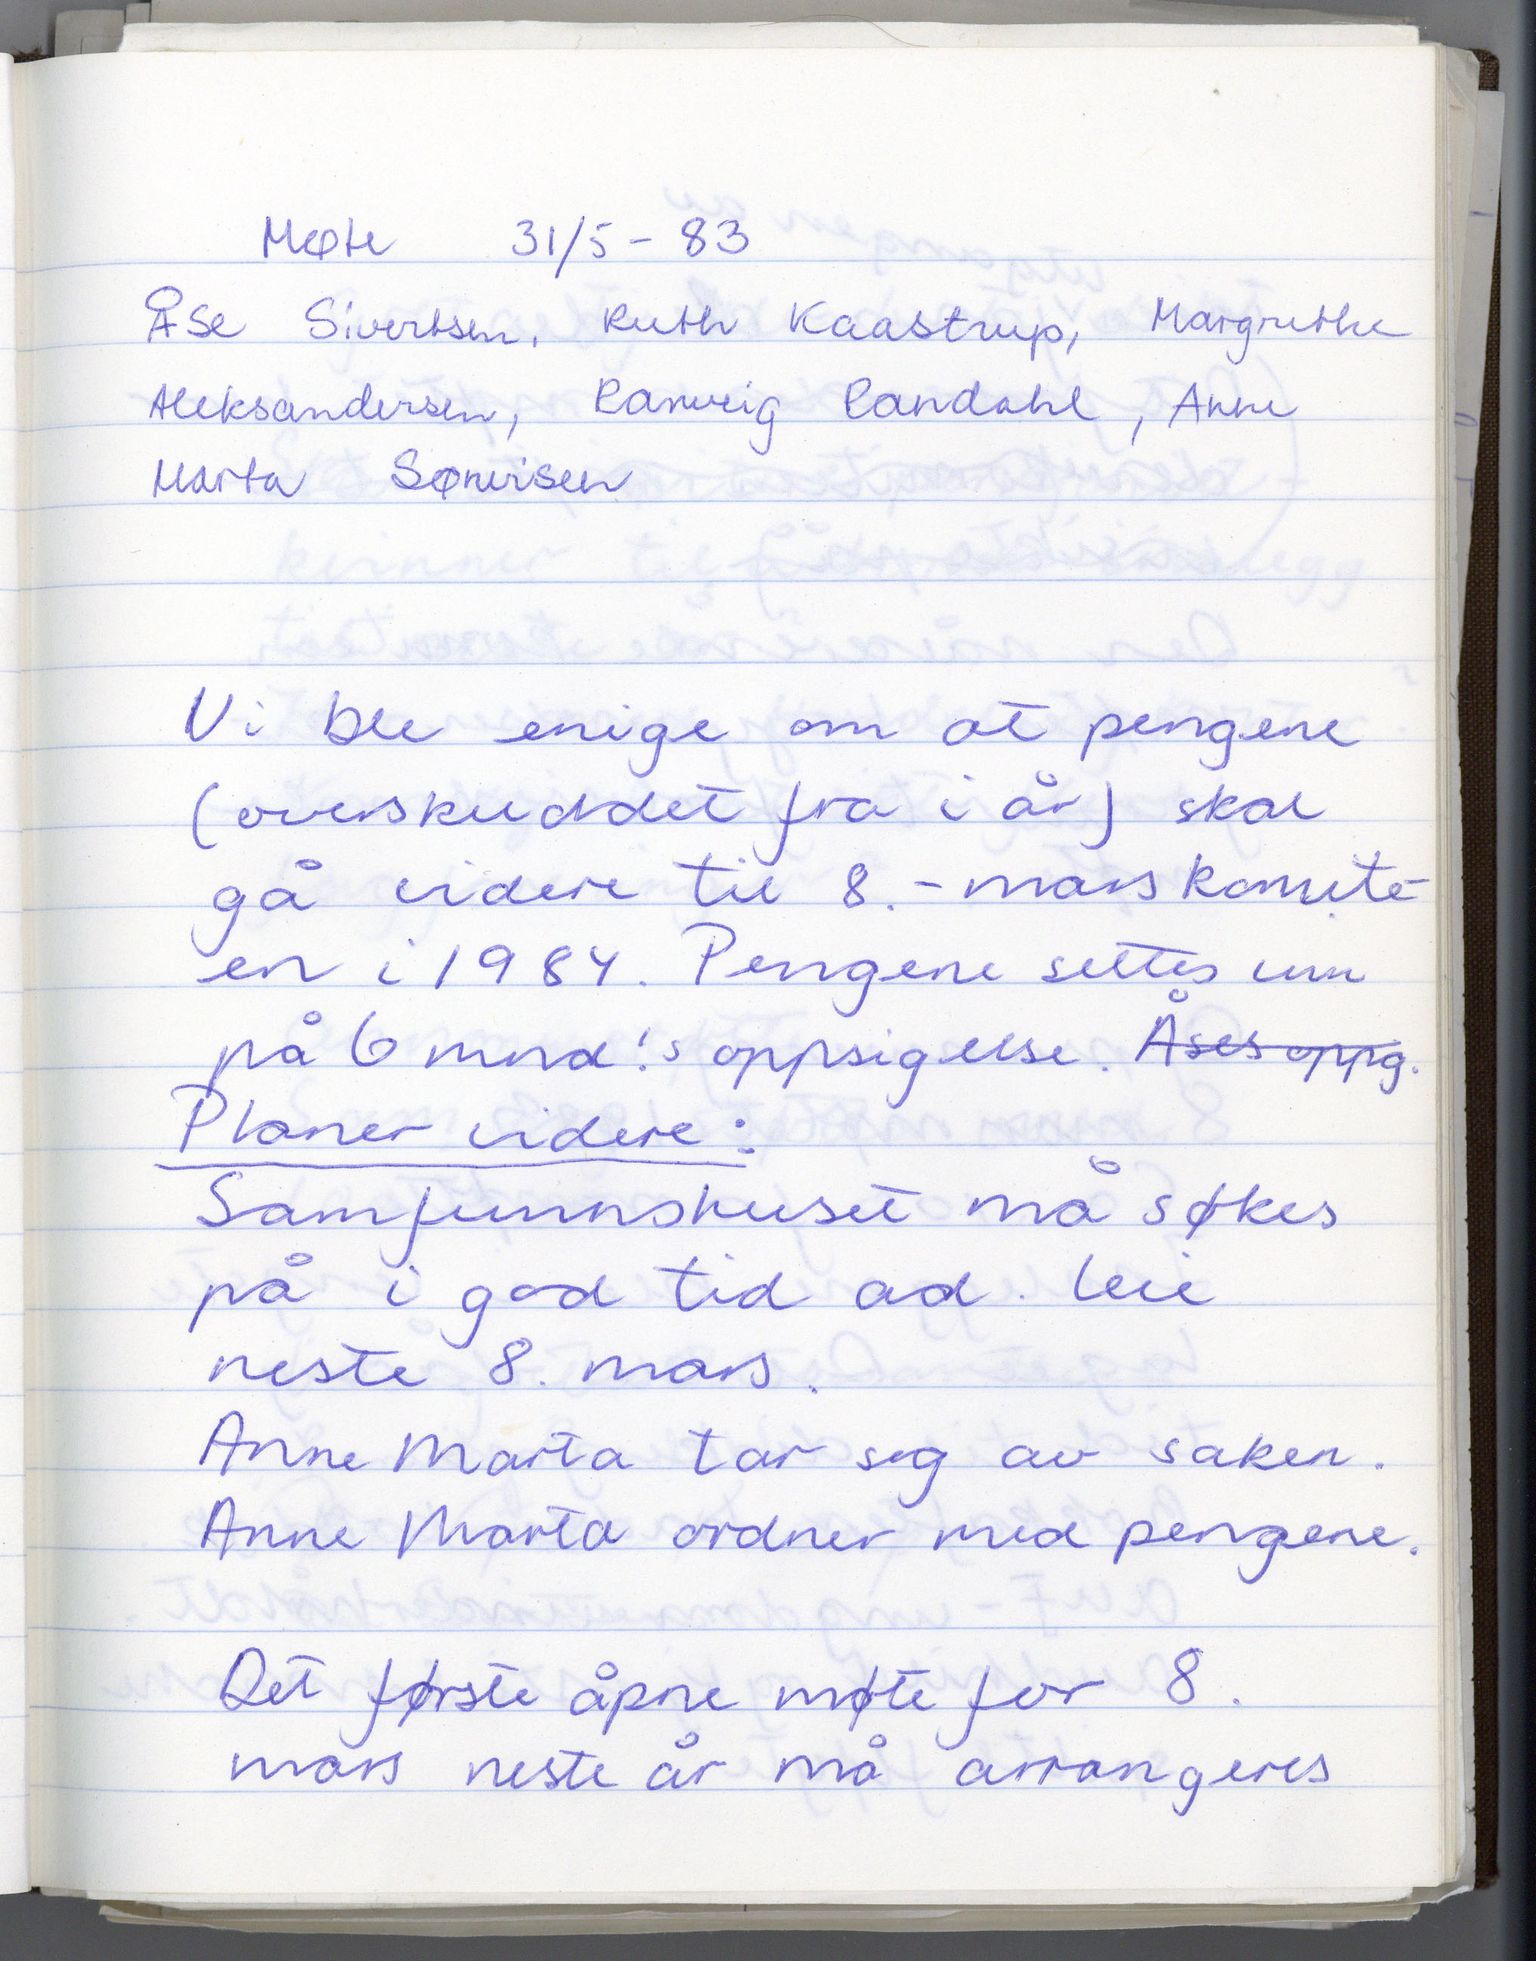 Møte 31/5 - 83
Åse Sivertsen, Ruth Kaastrup, Margrethe
Aleksandersen, Ranveig Randahl, Anne
Marta Sørensen
Vi ble enige om at pengene
(overskuddet fra i år) skal
gå videre til 8. - marskomite-
en i 1984. Pengene settes inn
på 6 mnd!s oppsigelse. Åses oppg.
Planer videre:
Samfunnshuset må søkes
på i god tid ad. leie
neste 8. mars.
Anne Marta tar seg av saken.
Anne Marta ordner med pengene.
Det første åpne møte for 8.
mars neste år må arrangeres